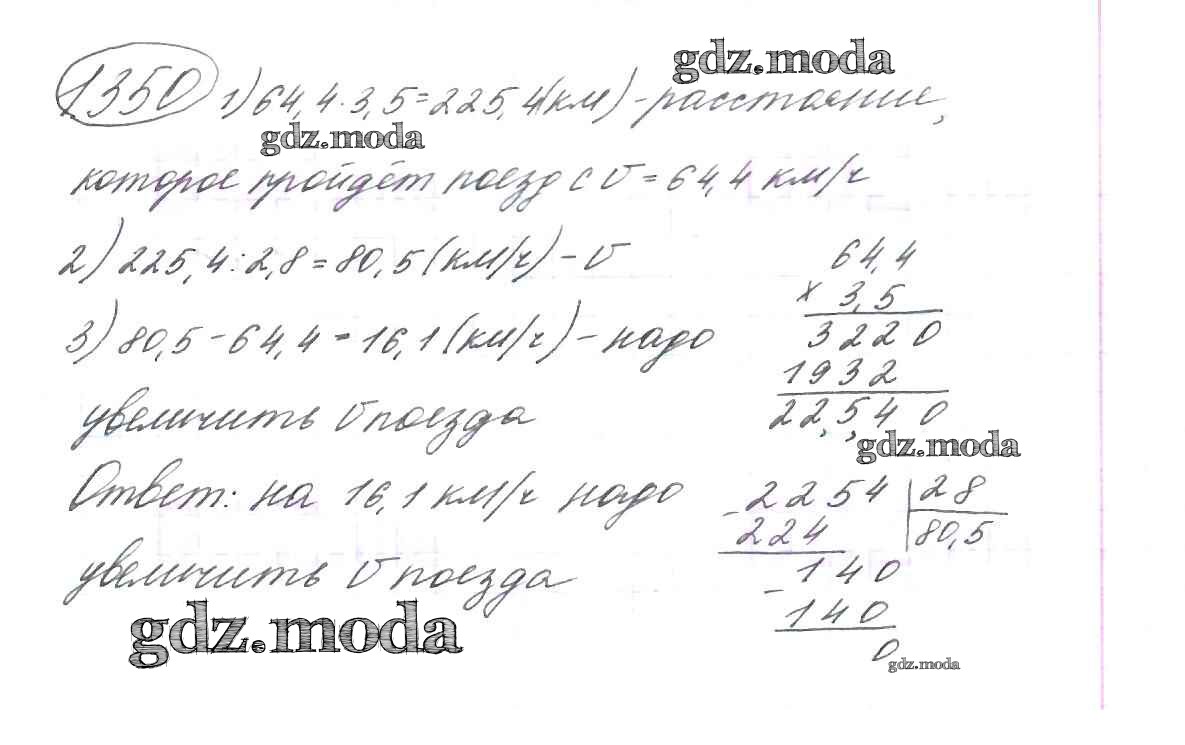 1350 1) 64,4·3,5=225,4(км) - расстояние,
gdz.moda
gdz.moda
которое пройдёт поезд с v = 64,4 км/ч
2) 225,4:2,8=80,5(км/ч) - v
3) 80,5-64,4=16,1(км/ч) - надо
увеличить v поезда
Ответ: на 16,1 км/ч надо
увеличить v поезда
gdz.moda
64,4
× 3,5
3220
1932
22,5,40
gdz.moda
- 2254 | 28
224 80,5
- 140
140
0
gdz.moda